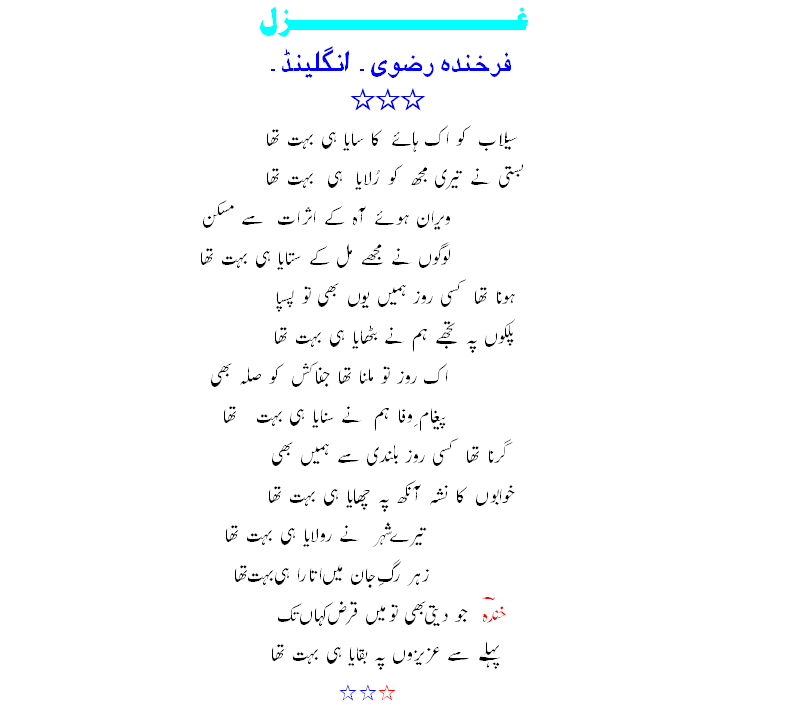 غـــزل
فرخندہ رضوی۔ انگلینڈ۔
☆☆☆
سیلاب کو اک ہائے کا سایا ہی بہت تھا
بستی نے تیری مجھ کو رُلایا ہی بہت تھا
ویران ہوئے آہ کے اثرات سے مسکن
لوگوں نے مجھے مل کے ستایا ہی بہت تھا
ہونا تھا کسی روز ہمیں یوں بھی تو پسپا
پلکوں پہ تجھے ہم نے بٹھایا ہی بہت تھا
اک روز تو ملنا تھا جفاکش کو صلہ بھی
پیغامِ وفا ہم نے سنایا ہی بہت تھا
گرنا تھا کسی روز بلندی سے ہمیں بھی
خوابوں کا نشہ آنکھ پہ چھایا ہی بہت تھا
تیرے شہر نے رولایا ہی بہت تھا
زہر رگِ جان میں اتارا ہی بہت تھا
خندہؔ جو دیتی بھی تو میں قرض کہاں تک
پہلے سے عزیزوں پہ بقایا ہی بہت تھا
☆☆☆